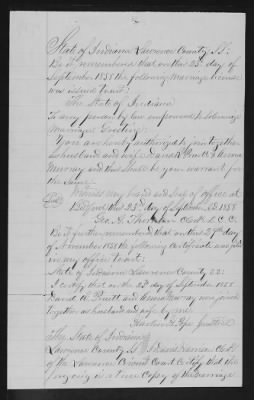 State of Indiana Lawrence County SS:
Be it remembered that on this 22d day of
September 1888 the following marriage license
was issued to wit:
The State of Indiana
To any person by law empowered to solemnize
Marriages Greeting:
You are hereby authorized to join together
as husband and wife David A Pruitt & Anna
Murray and this shall be your warrant for
the same.
Witness my hand and seal of office at
Bedford this 22d day of September 1888
Geo. H. Thornton Clerk L. C. C.
Be it further remembered that on this 27th day
of November 1888 the following certificate was filed
in my office to wit:
State of Indiana Lawrence County SS:
I certify that on the 22d day of September 1888
David A. Pruitt and Anna Murray were joined
together as husband and wife by me
Justice
The State of Indiana
Lawrence County SS I Clerk
of the Lawrence Circuit Court Certify that the
foregoing is a true Copy of the Marriage